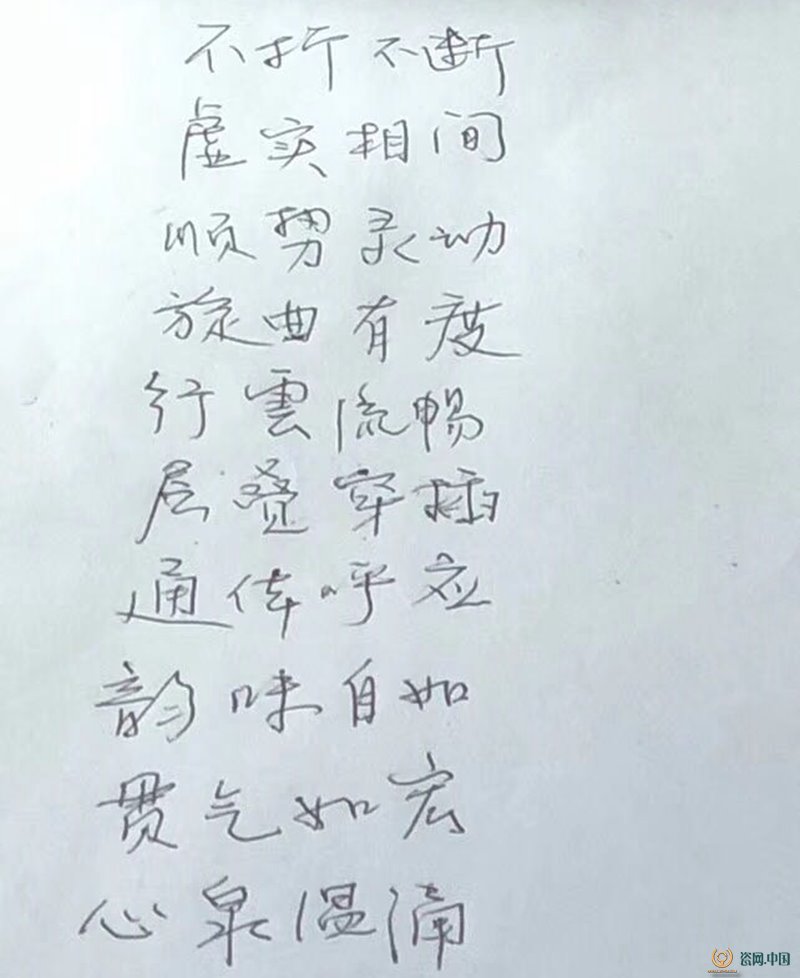 不折不断
虚实相间
顺势灵动
旋曲有度
行雲流暢
层叠穿插
通体呼应
韵味自如
贯气如宏
心泉温涌
瓷网.中国